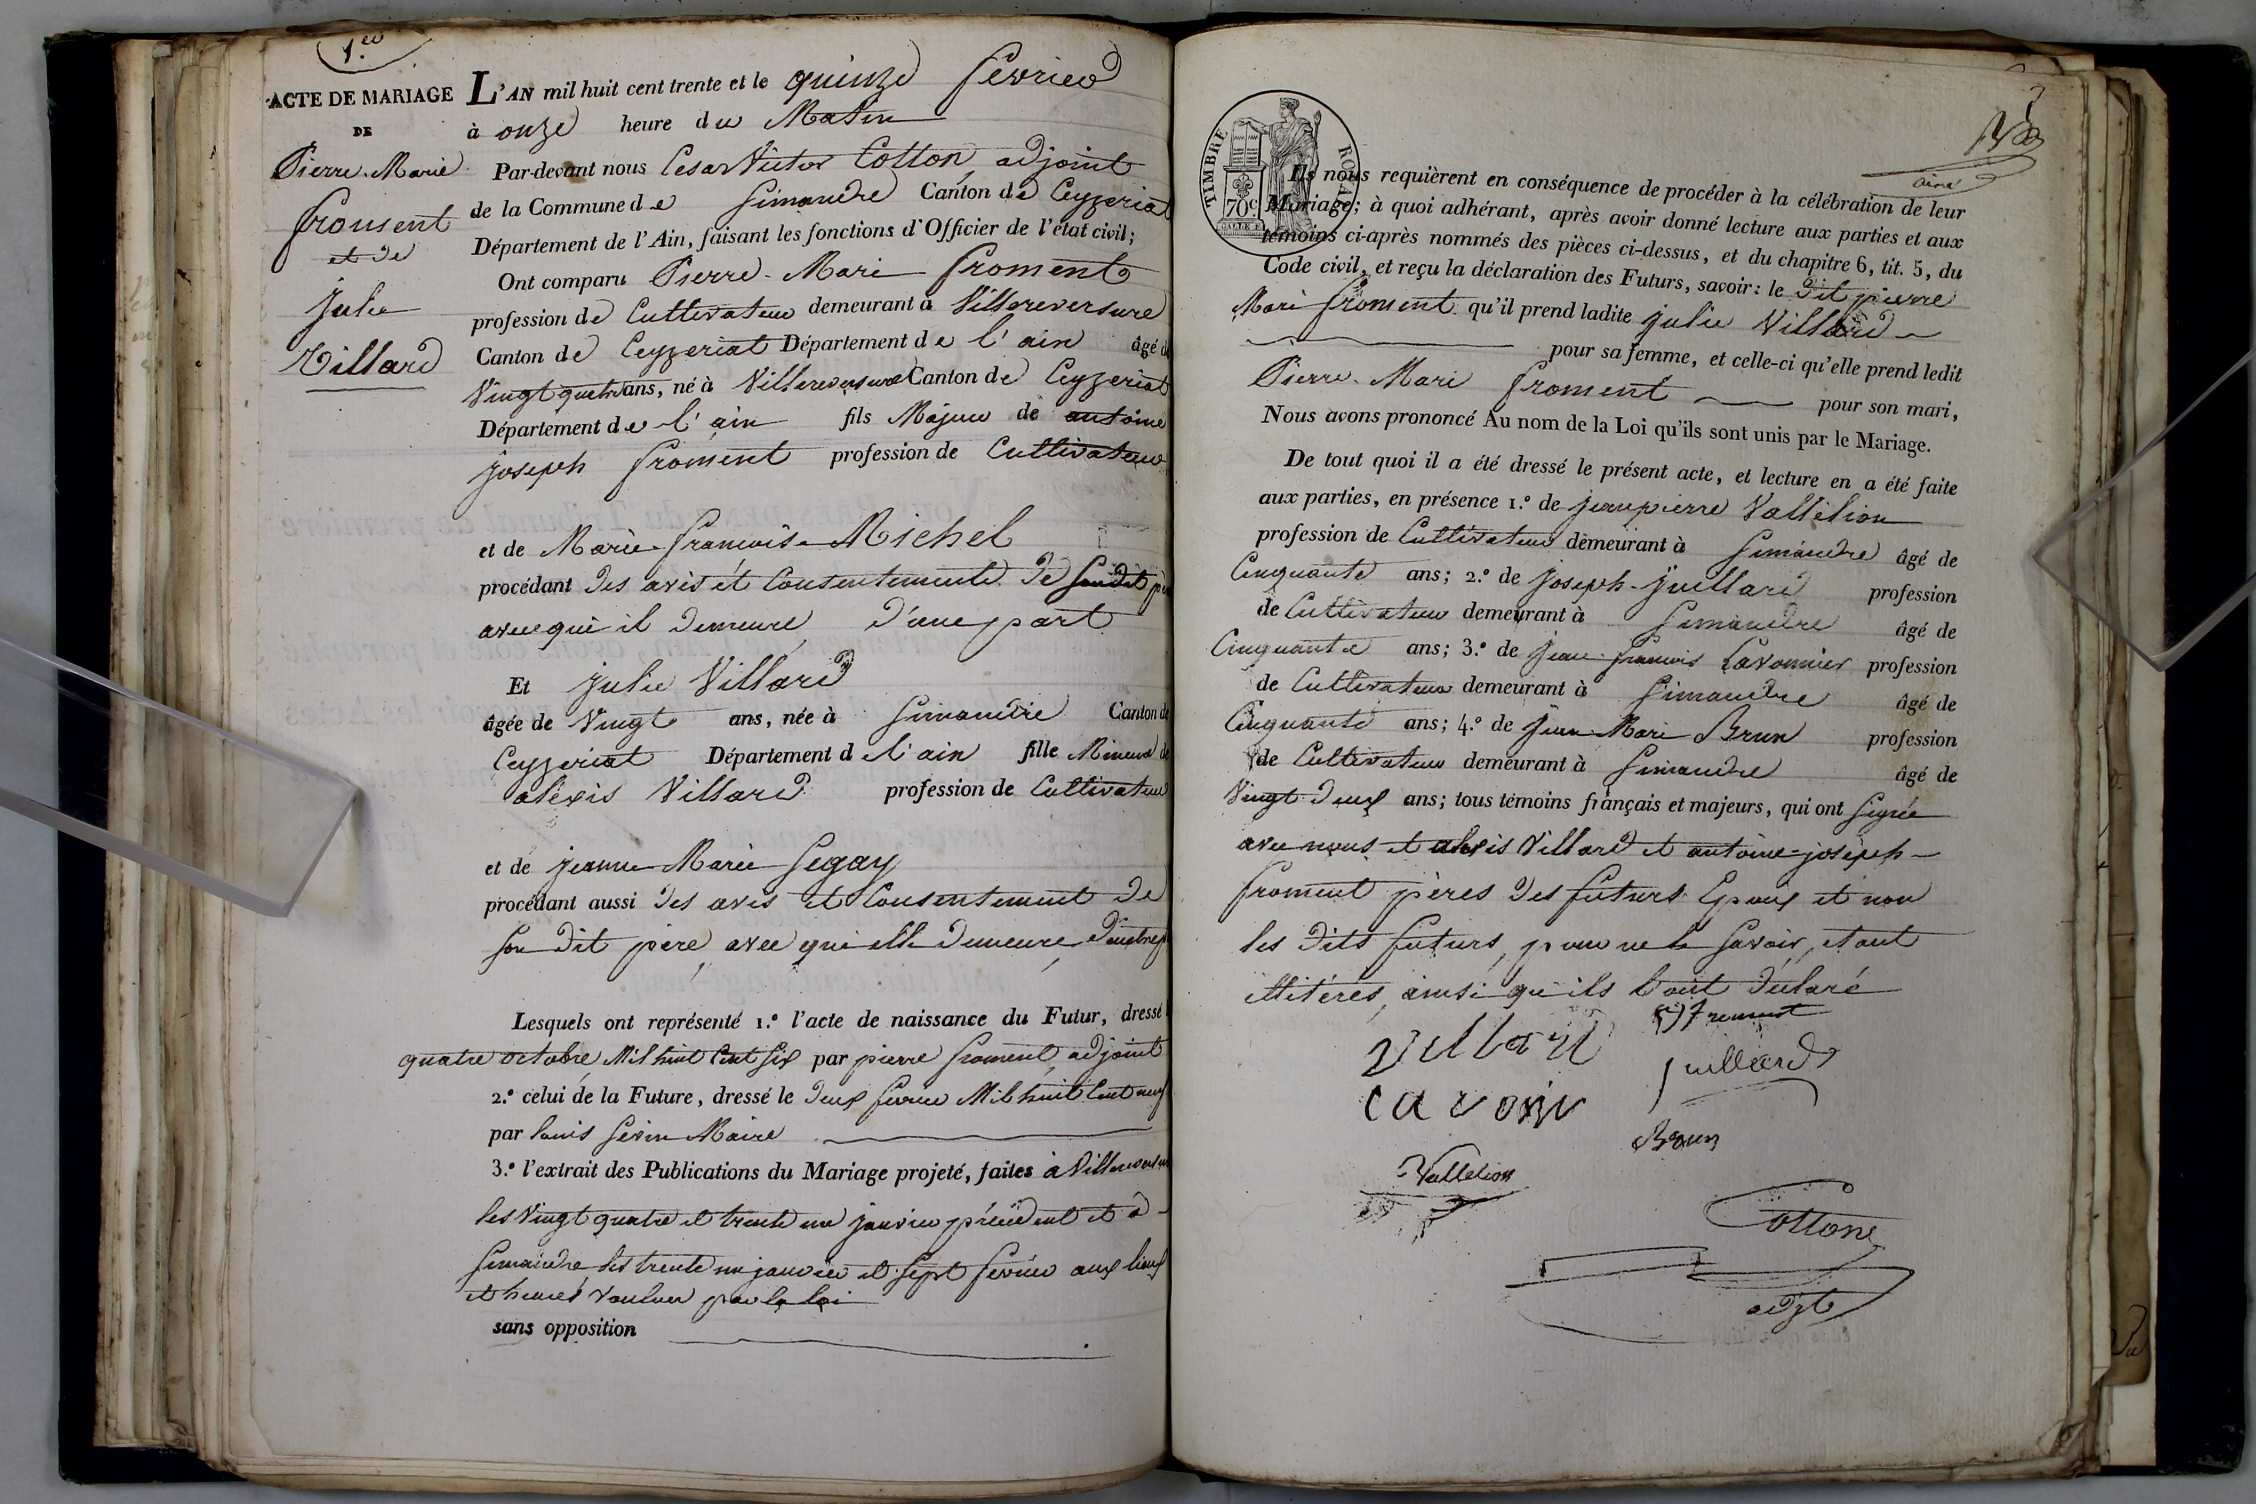 1.er
ACTE DE MARIAGE
DE
Pierre-Marie
froment
et de
Julie
Villard
L'AN mil huit cent trente et le quinze fevrier
à onze heure du Matin
Par-devant nous Cesar Victor Cotton, adjoint
de la Commune de Simandre Canton de Ceyzeriat
Département de l'Ain, faisant les fonctions d'Officier de l'état civil;
Ont comparu Pierre-Mari froment
profession de Cultivateur demeurant à Villereversure
Canton de Ceyzeriat Département de l'ain âgé de
Vingt quatre ans, né à Villereversure Canton de Ceyzeriat
Département de l'ain fils Majeur de antoine
joseph froment profession de Cultivateur
et de Marie-françoise-Michel
procédant des avis et Consentement de Sondit père
avec qui il demeure d'une part
Et Julie Villard
âgée de Vingt ans, née à Simandre Canton de
Ceyzeriat Département de l'ain fille Mineure de
alexis Villard profession de Cultivateur
et de jeanne Marie Segay
procédant aussi des avis et Consentement de
son dit père, avec qui elle demeure d'autre p
Lesquels ont représenté 1.º l'acte de naissance du Futur, dressé
quatre octobre Mil huit Cent Six par pierre froment, adjoint
2.º celui de la Future, dressé le deux fevrier Mil huit Cent neuf
par louis Sevin Maire
3.º l'extrait des Publications du Mariage projeté, faites à Villereversure
les Vingt quatre et trente un janvier précédent et à
Simandre les trente un janvier et sept fevrier aux lieux
et heures voulues par la loi
sans opposition
TIMBRE ROYAL
70c
Ils nous requièrent en conséquence de procéder à la célébration de leur
Mariage; à quoi adhérant, après avoir donné lecture aux parties et aux
témoins ci-après nommés des pièces ci-dessus, et du chapitre 6, tit. 5, du
Code civil, et reçu la déclaration des Futurs, savoir: le dit pierre
Mari froment qu'il prend ladite julie Villard
pour sa femme, et celle-ci qu'elle prend ledit
Pierre-Mari froment pour son mari,
Nous avons prononcé Au nom de la Loi qu'ils sont unis par le Mariage.
De tout quoi il a été dressé le présent acte, et lecture en a été faite
aux parties, en présence 1.º de jeanpierre Vallélion
profession de Cultivateur demeurant à Simandre âgé de
Cinquante ans; 2.º de Joseph-Juillard profession
de Cultivateur demeurant à Simandre âgé de
Cinquante ans; 3.º de Jean-francois Cavonnier profession
de Cultivateur demeurant à Simandre âgé de
Cinquante ans; 4.º de Jean Mari Brun profession
de Cultivateur demeurant à Simandre âgé de
Vingt deux ans; tous témoins français et majeurs, qui ont Signé
avec nous et alexis Villard et antoine-joseph
froment pères des futurs Epoux et non
les dits futurs, pour ne le savoir, etant
illitérés, ainsi qu'ils l'ont déclaré
Villard
froment
Juillard
Brun
Vallelion
Cottone
adjt